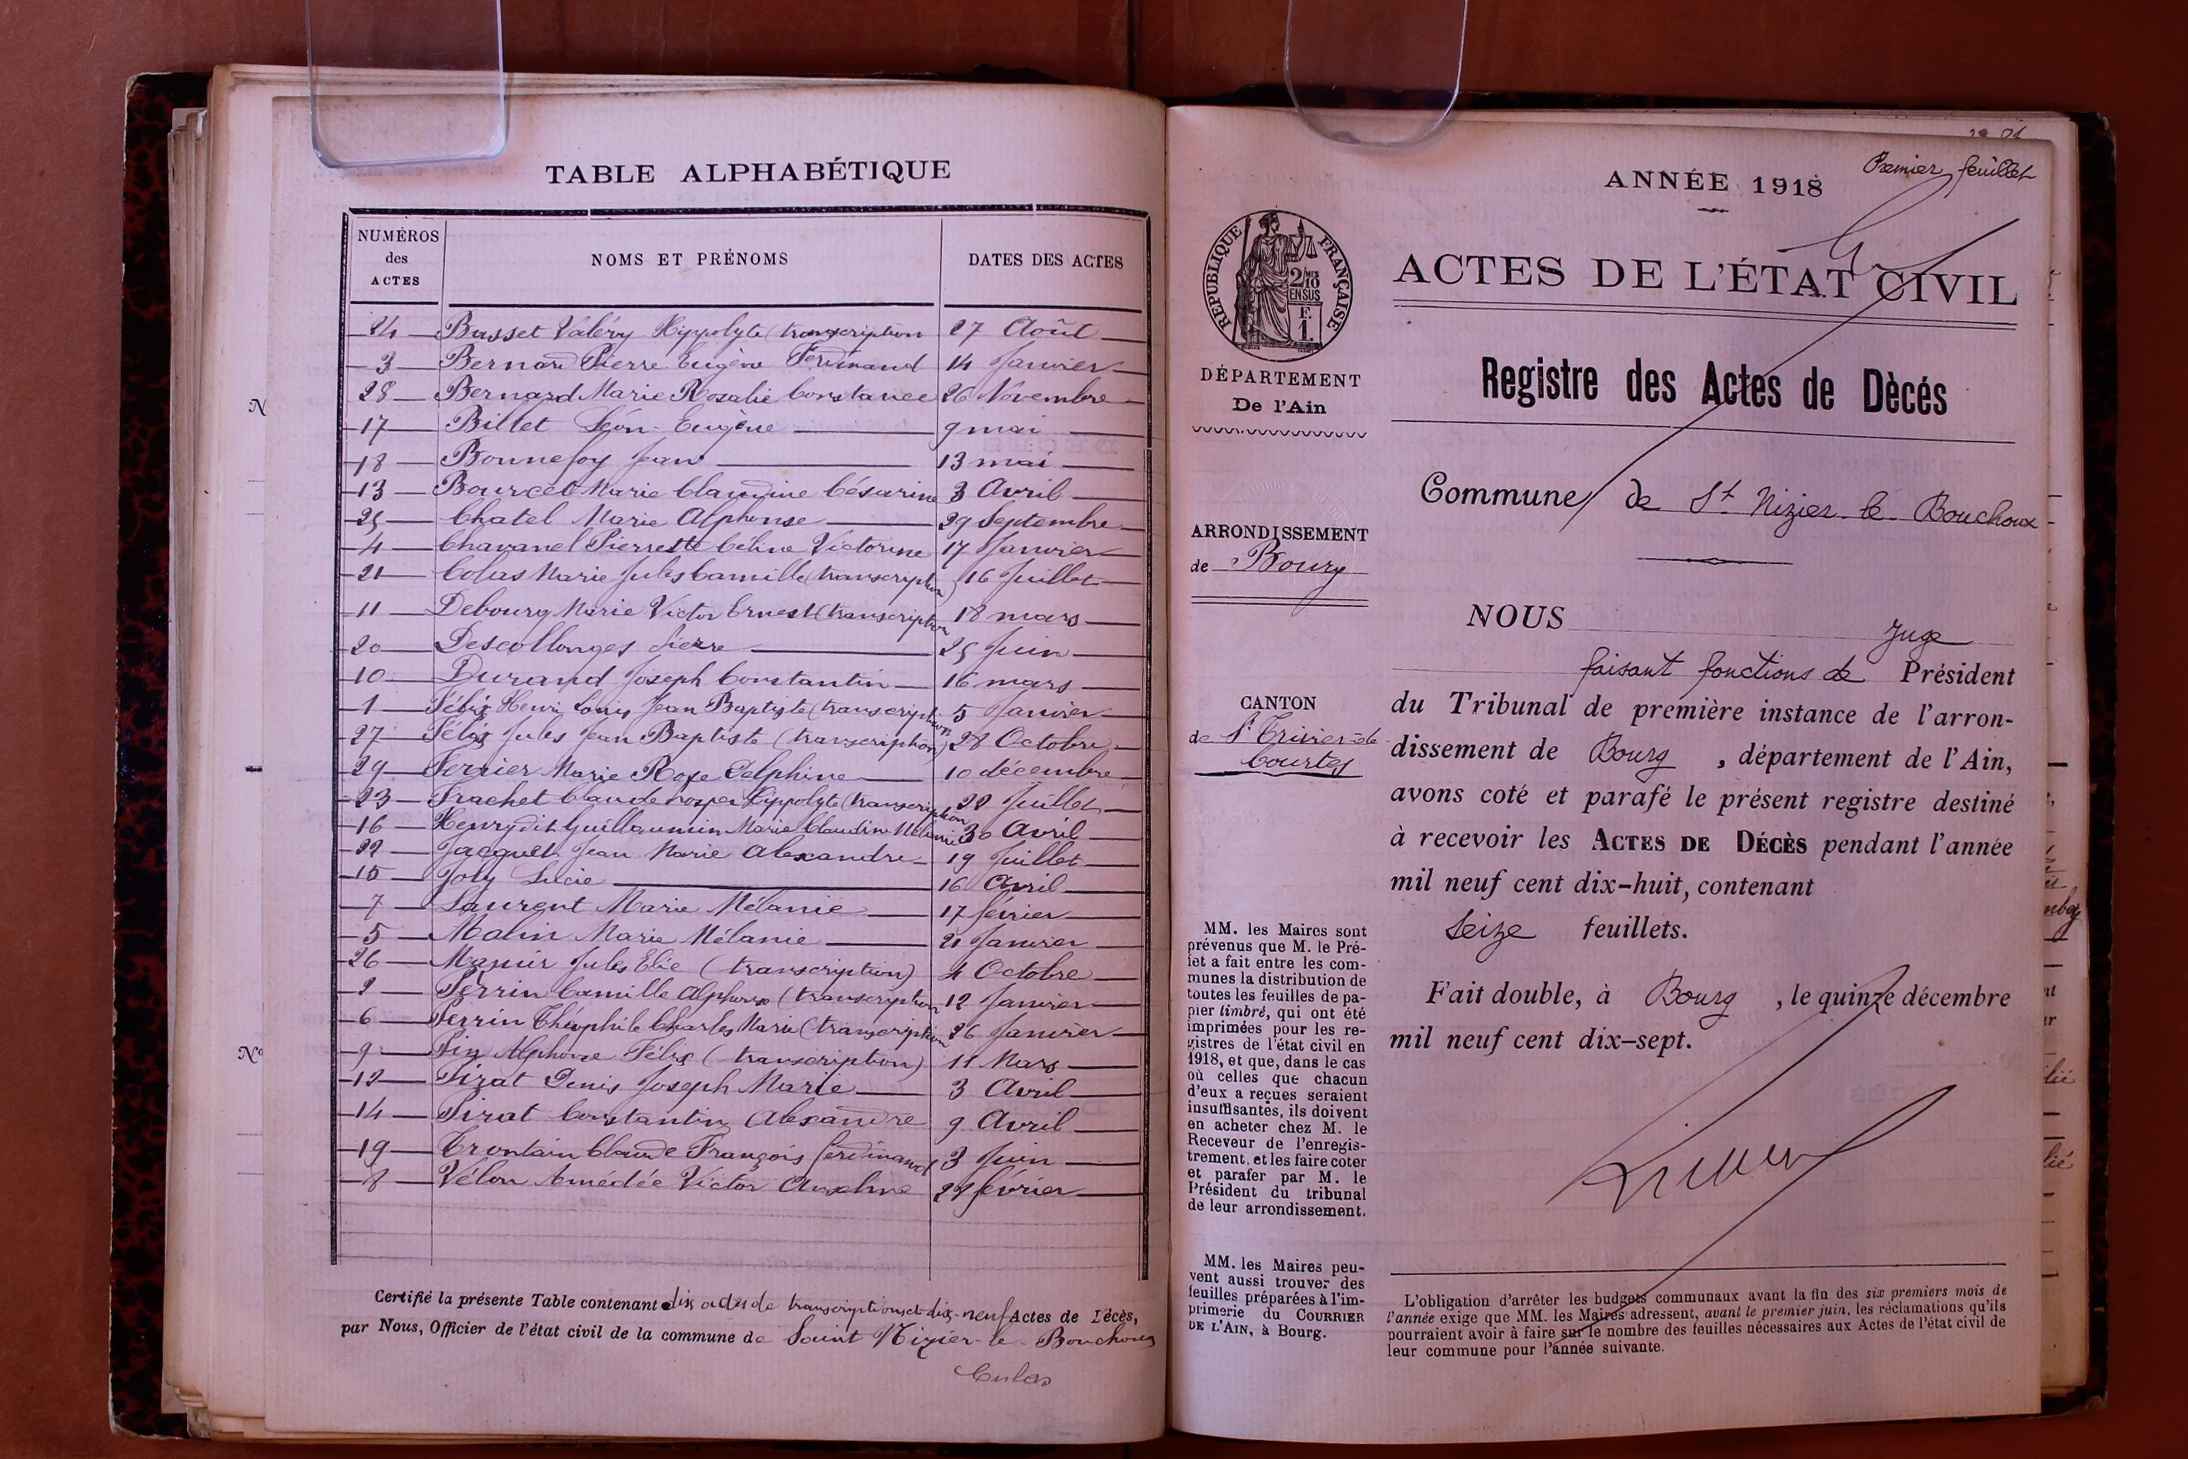 TABLE ALPHABÉTIQUE
NUMÉROS des ACTES
NOMS ET PRÉNOMS
DATES DES ACTES
24 Basset Valéry Hippolyte (transcription 27 Août
3 Bernard Pierre Eugène Ferdinand 14 Janvier
28 Bernard Marie Rosalie Constance 26 Novembre
17 Billet Léon Eugène 9 mai
18 Bonnefoy Jean 13 mai
13 Bourcel Marie Claudine Césarine 3 Avril
25 Chatel Marie Alphonse 29 Septembre
4 Chavanel Pierrette Céline Victorine 17 Janvier
21 Colas Marie Jules Camille (transcription) 16 Juillet
11 Debourg Marie Victor Ernest (transcription 18 mars
20 Descollonges Pierre 25 Juin
10 Durand Joseph Constantin 16 mars
1 Félix Henri Louis Jean Baptiste (transcription 5 Janvier
27 Félix Jules Jean Baptiste (transcription) 28 Octobre
29 Ferrier Marie Rose Delphine 10 décembre
23 Frachet Claude Prosper Hippolyte (transcription 22 Juillet
16 Henry dit Guillaumin Marie Claudine Mélanie 30 Avril
22 Jacquet Jean Marie Alexandre 19 Juillet
15 Joly Lucie 16 Avril
7 Laurent Marie Mélanie 17 février
5 Malin Marie Mélanie 21 Janvier
26 Mazuir Jules Elie (transcription) 4 Octobre
2 Perrin Camille Alphonse (transcription 12 Janvier
6 Perrin Théophile Charles Marie (transcription 26 Janvier
9 Pin Alphonse Félix (transcription) 11 Mars
12 Pizat Denis Joseph Marie 3 Avril
14 Pirat Constantin Alexandre 9 Avril
19 Trontain Claude François Ferdinand 3 Juin
8 Vélon Amédée Victor Anselme 22 février
Certifié la présente Table contenant dix actes de transcriptions et dix-neuf Actes de Décès,
par Nous, Officier de l'état civil de la commune de Saint Nizier-le-Bouchoux
Premier feuillet
ANNÉE 1918
ACTES DE L'ÉTAT CIVIL
RÉPUBLIQUE FRANÇAISE
2/10 EN SUS
F. 1.
DÉPARTEMENT
De l'Ain
Registre des Actes de Dècés
Commune de St Nizier le Bouchoux
ARRONDISSEMENT
de Bourg
CANTON
de St Trivier-de
Courtes
NOUS Juge
faisant fonctions de Président
du Tribunal de première instance de l'arron-
dissement de Bourg, département de l'Ain,
avons coté et parafé le présent registre destiné
à recevoir les ACTES DE DÉCÈS pendant l'année
mil neuf cent dix-huit, contenant
Seize feuillets.
Fait double, à Bourg, le quinze décembre
mil neuf cent dix-sept.
MM. les Maires sont
prévenus que M. le Pré-
fet a fait entre les com-
munes la distribution de
toutes les feuilles de pa-
pier timbré, qui ont été
imprimées pour les re-
gistres de l'état civil en
1918, et que, dans le cas
où celles que chacun
d'eux a reçues seraient
insuffisantes, ils doivent
en acheter chez M. le
Receveur de l'enregis-
trement, et les faire coter
et parafer par M. le
Président du tribunal
de leur arrondissement.
MM. les Maires peu-
vent aussi trouver des
feuilles préparées à l'im-
primerie du COURRIER
DE L'AIN, à Bourg.
L'obligation d'arrêter les budgets communaux avant la fin des six premiers mois de
l'année exige que MM. les Maires adressent, avant le premier juin, les réclamations qu'ils
pourraient avoir à faire sur le nombre des feuilles nécessaires aux Actes de l'état civil de
leur commune pour l'année suivante.